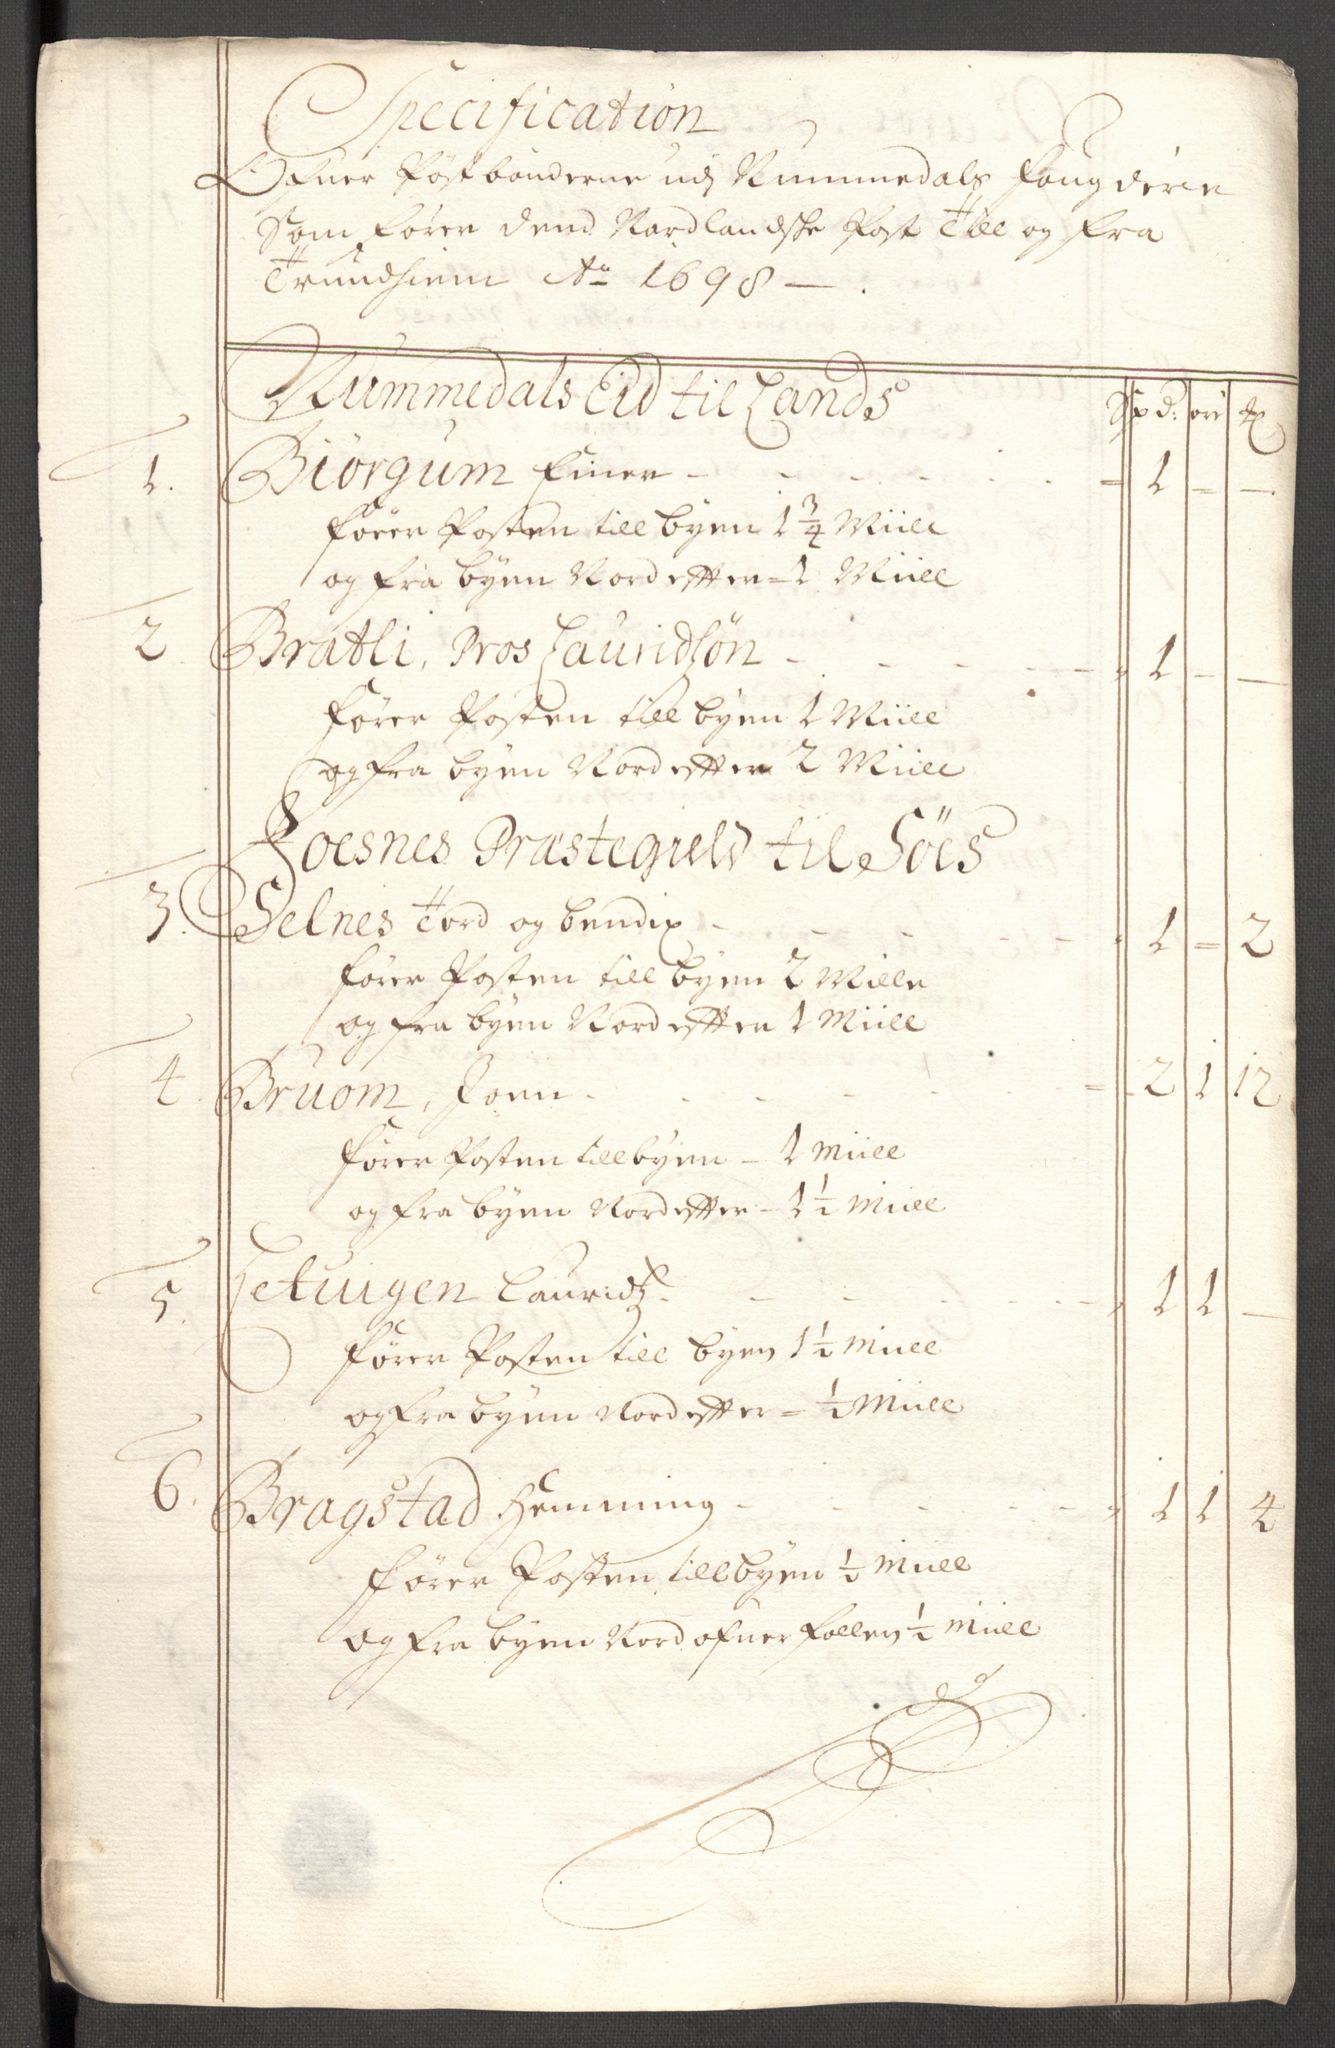 Specification
Ofuer Postbønderne udj Nummedals fougderie
Som fører dend Nordlandske Post Till og fra
Trundhiem Ao 1698 —.
Nummedals Eid til Lands
Sp d: ort
1. Biørgum Einer - - - - - - = 1 = —
fører Posten till byen 1 3/4 Miile
og fra byen Nord efter = 1 Miill
2. Bratli, Pros Lauridsøn - - - - - 1 - —
fører Posten till byen 1 Miill
og fra byen Nord efter 2 Miill
Foesnes Præstegield til Søes
3. Selnes Tord og bendix - - - - - 1 = 2
fører Posten till byen 2 Mille
og fra byen Nord efter 1 Miill
4. Bruom, Joen - - - - - - = 2 1 12
fører Posten till byen — 1 miill
og fra byen Nord efter - 1 1/2 miill
5. Lauridtz - - - - - 1 1 —
fører Posten till byen 1 1/2 miill
og fra byen Nord efter = 1/2 Miill
6. Bragstad Hemming - - - - - 1 1 4
fører Posten till byen 1/2 miill
og fra byen Nord ofuer follen 1/2 miill